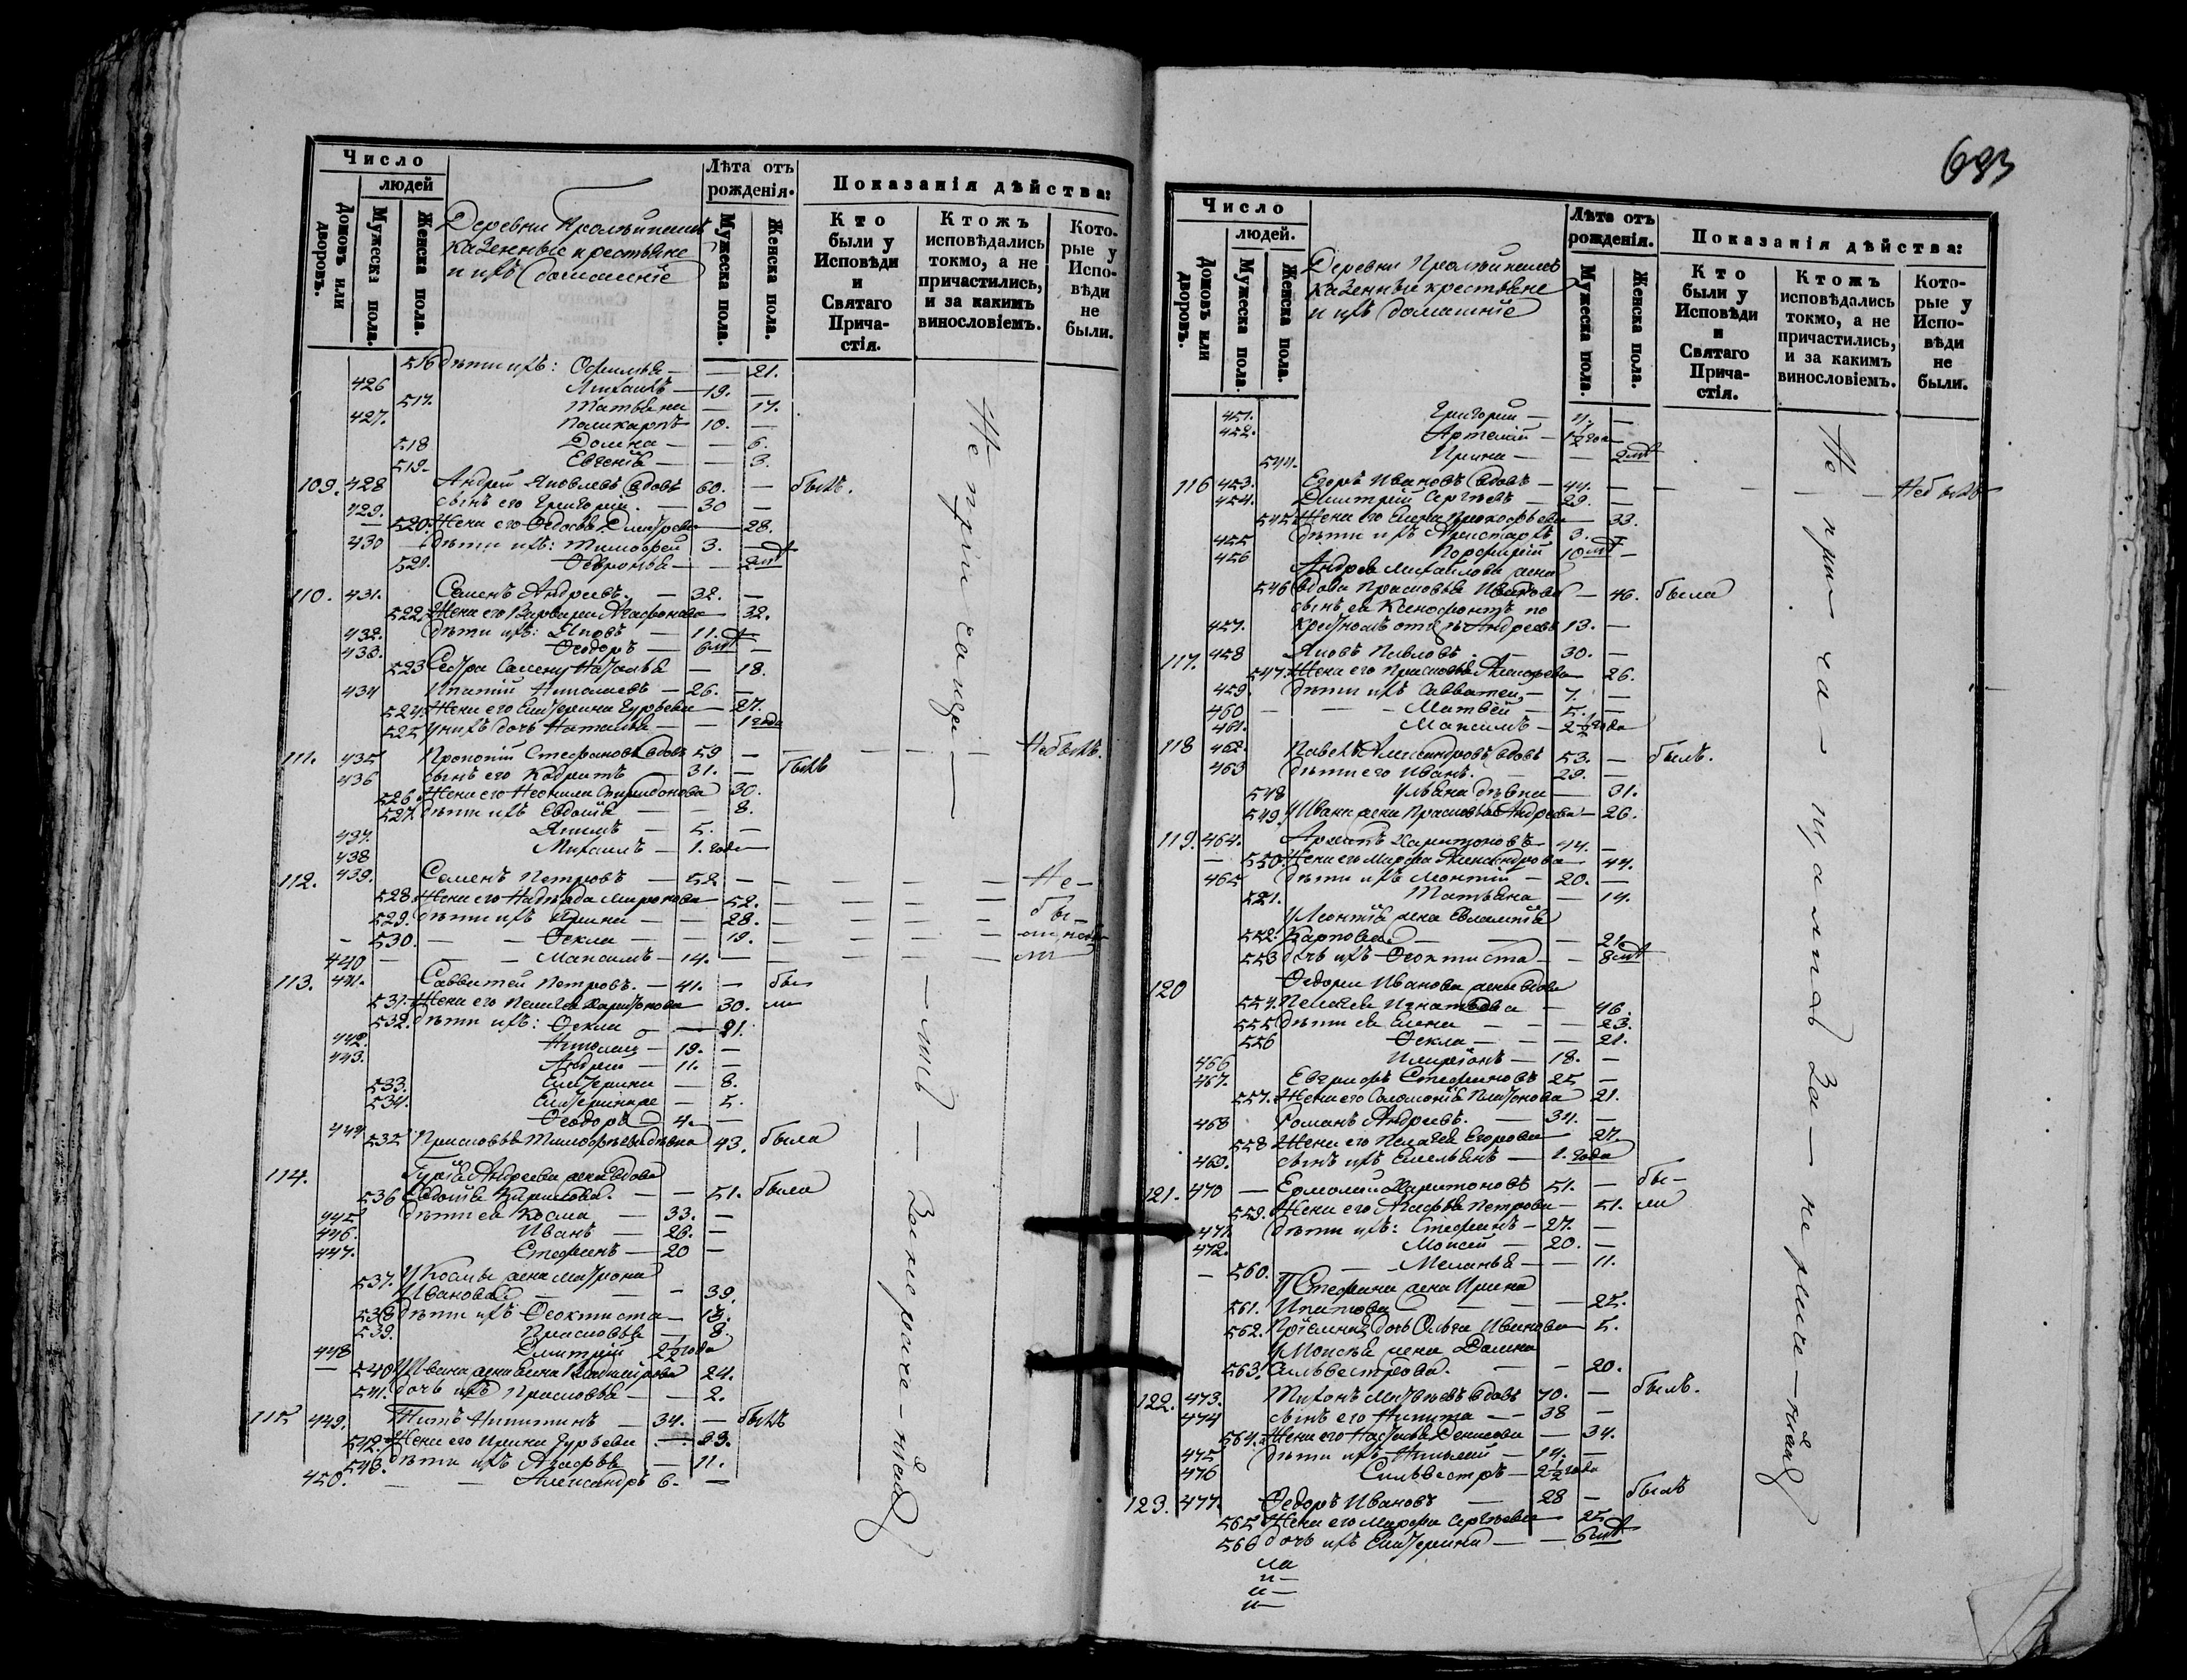 Число
людей
Домовъ или дворовъ.
Мужеска пола.
Женска пола.
Деревни
казенные крестьяне
и ихъ домашніе
Лѣта отъ рожденія.
Мужеска пола.
Женска пола.
Показанія дѣйства:
Кто были у Исповѣди и Святаго Прича-стія.
Ктожъ исповѣдались токмо, а не причастились, и за какимъ винословіемъ.
Кото-рые у Испо-вѣди не были.
516 дѣти ихъ: Офимья — — 21.
426 Михаилъ — 19. —
517. Татьяна — 17.
427. Поликарпъ 10. —
518 Домна — — 6.
519. Евгенія — — 3.
109. 428 Андрей Яковлевъ вдовъ 60. — былъ.
429. сынъ его Григорій. — 30 —
— 520. Жена его Федосья — 28.
430 — дѣти ихъ: Тимофей 3. —
521. Февронья — — 2 мц
110. 431. Семенъ Андреевъ. — 32. —
522. Жена его Варвара Агафонова — 32.
432. дѣти ихъ: Яковъ — 11. —
433. Феодоръ — 6 мц —
523 Сестра Семену Наталья — 18.
434 Ипатій Николаевъ — 26. —
524. Жена его Екатерина Гурьева — 27.
525 у нихъ дочь Наталья — — 1 года
111. 435 Прокопій Стефановъ вдовъ 59 — — — — Небылъ.
436 сынъ его Кодратъ 31. — былъ
526. Жена его Неонила Спиридонова 30.
527. дѣти ихъ Евдокія — — 8.
437. Якимъ — 5. —
438 Михаилъ — 1. года —
112. 439. Семенъ Петровъ — 52 — — — — Не-
528. Жена его Надежда Миронова — 52. — — — бы-
529. дѣти ихъ Ирина — — 28. — — —
— 530. — — Фекла — — 19. — — —
440 — — — Максимъ — 14. — — — — ли
113. 441. Савватей Петровъ. — 41. — бы-
531. Жена его Пелагея Харитонова 30. ли
532. дѣти ихъ: Фекла — — 21.
442. Николай — 19. —
443. Андрей — 11. —
533. Екатерина — 8.
534. Екатерина же — 5.
444 Феодоръ 4. —
535 Прасковья Тимофѣева дѣвка 43. была
114. Гурія Андреева жена вдова
536 Евдокія — — 51. была
445 дѣти ея Косма — 33. —
446. Иванъ — 26. —
447. Стефанъ — 20 —
537. У Космы жена Матрона
Иванова — — — 39.
538 дѣти ихъ Феоктиста — 13.
539. Прасковья — 8.
448 Дмитрій 2½ года
— 540 У Ивана жена Елена 24.
541. дочь ихъ Прасковья — — 2.
115 449. Титъ Никитинъ — 34. — былъ
542. Жена его Ирина Гурьева — 29.
543. дѣти ихъ Агафья — 11.
450. — — Александръ 6. —
Не при са ща — лись — За нерасе-ніемъ
693
Число
людей.
Домовъ или дворовъ.
Мужеска пола.
Женска пола.
Деревни
казенные крестьяне
и ихъ домашніе
Лѣта отъ рожденія.
Мужеска пола.
Женска пола.
Показанія дѣйства:
Кто были у Исповѣди и Святаго Прича-стія.
Ктожъ исповѣдались токмо, а не причастились, и за какимъ винословіемъ.
Кото-рые у Испо-вѣди не были.
451. Григорій — 4. —
452. Артемій — 1½ года
544. Ирина — — 2 мц
116 453. Егоръ Ивановъ вдовъ — 44. — — — — Небылъ
454. Дмитрій Сергѣевъ — 29. —
545. Жена его Елена Прокофьева — 33.
455 дѣти ихъ Аристархъ 3. —
456 Порфирій 10 мц —
Андрея Михайлова жена
546 вдова Прасковья Иванова — 46. была
сынъ ея Ксенофонтъ по
457. крестномъ отцѣ Андреевъ 13. —
117. 458 Яковъ Павловъ. — 30. —
547. Жена его Прасковья Алексѣева — 26.
459. дѣти ихъ Савватей — 7. —
460 — — — Матвѣй — 5. —
461. Максимъ — 2½ года
118 462. Павелъ Александровъ вдовъ 53. — былъ.
463 дѣти его Иванъ. — 29. —
548 Ульяна дѣвка — 31.
549. У Ивана жена Прасковья Андреева — 26.
119. 464. Харитоновъ — 44. —
— 550. Жена его Марфа Александрова — 44.
465 дѣти ихъ Леонтій — 20. —
551. Татьяна — 14.
У Леонтія жена Евлампія
552. Карпова — — — 21.
553 дочь ихъ Феоктиста — — 8 мц
120 Федора Иванова жена вдова
554. Пелагея Игнатьева — 46.
555 дѣти ея Елена — — — 23.
556 Фекла — — — 21.
466 Иларіонъ — 18. —
467. Евграфъ Стефановъ 25 —
557. Жена его Соломонія Платонова 21.
468 Романъ Андреевъ. — 31. —
558 Жена его Пелагея Егорова — 27.
469. сынъ ихъ Емельянъ — 1. года
121. 470 — Ермолай Харитоновъ 51. — бы-
559. Жена его Агафья Петрова — 51. ли
471. дѣти ихъ: Стефанъ — 27. —
472. Моисей — 20. —
— 560. — — Меланья — — 11.
У Стефана жена Ирина
561. Ипатова — — — 25.
562. Пріемная дочь Ольга Иванова — 5.
У Моисея жена Домна
563. Сильвестрова. — — 20.
122. 473. Тихонъ Матвѣевъ вдовъ 70. — былъ.
474 сынъ его Никита — — 38 —
564. Жена его Наталья Денисова — 34.
475 дѣти ихъ Николай — 14. —
476 Сильвестръ — 2½ года
123. 477. Федоръ Ивановъ — 28 — былъ
565 Жена его Марфа Сергѣева — 25.
566 дочь ихъ Екатерина — — 6 мц